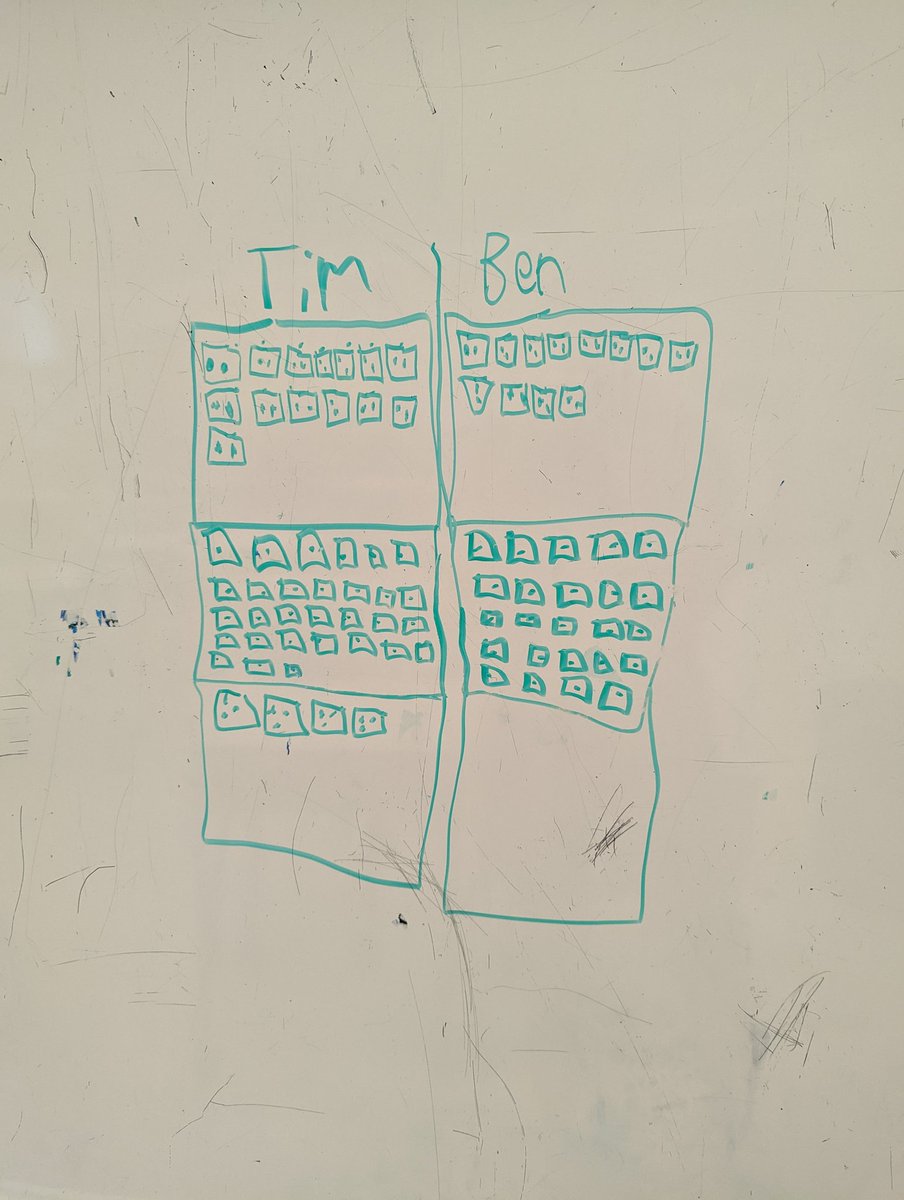 Tim Ben